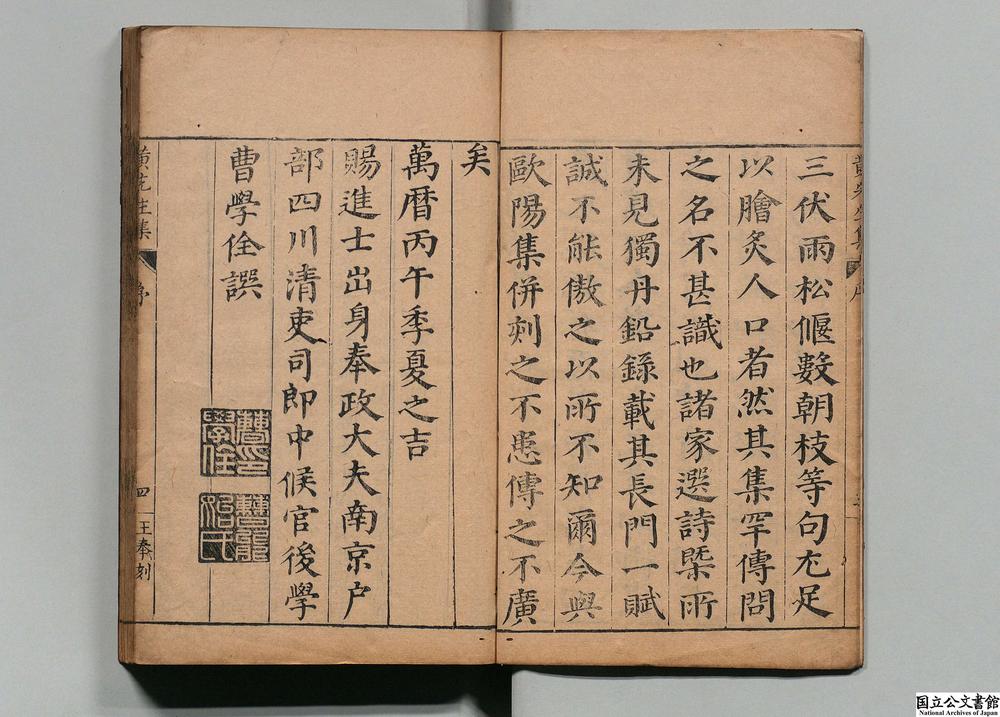 三伏雨松偃數朝枝等句尤足
以膾炙人口者然其集罕傳問
之名不甚識也諸家選詩槩所
未見獨丹鉛錄載其長門一賦
誠不能傲之以所不知爾今與
歐陽集併刻之不患傳之不廣
矣
萬曆丙午季夏之吉
賜進士出身奉政大夫南京户
部四川清吏司郎中候官後學
曹學佺譔
曹學佺印
黃先生集
序
四
王奉刻
国立公文書館
National Archives of Japan